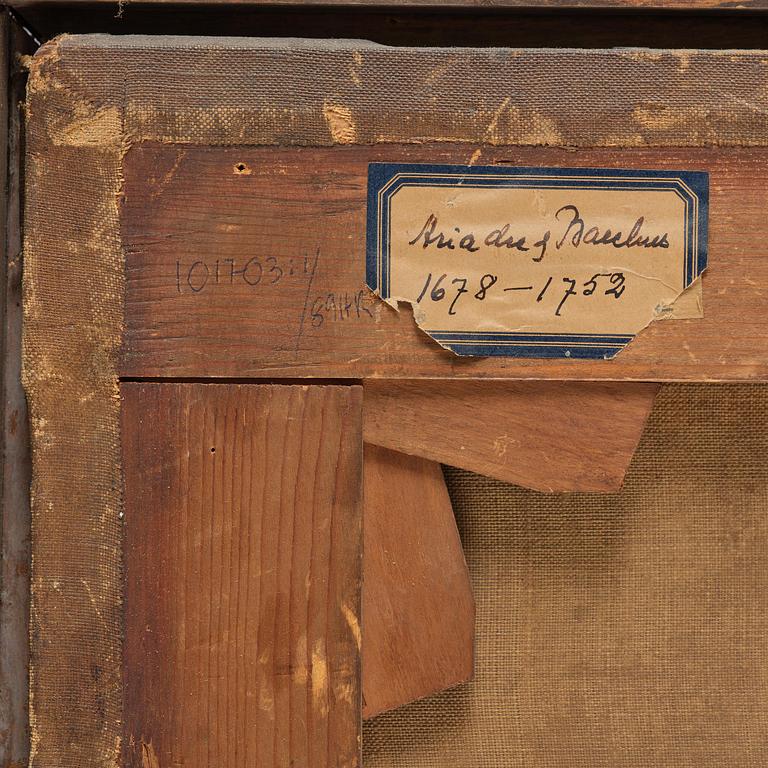 Ariadne & Bacchus
1678 – 1752
101703:1/
89HR